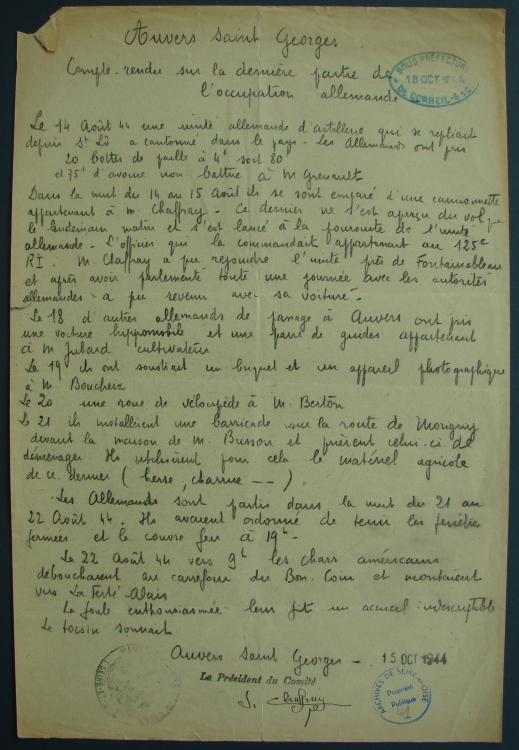 Auvers Saint Georges
Compte-rendu sur la dernière partie de
l'occupation allemande
SOUS PRÉFECTURE
18 OCT 1944
DE CORBEIL-S.&O.
Le 14 Août 44 une unité allemande d'artillerie qui se repliait
depuis St Lô a cantonné dans le pays. Les Allemands ont pris
20 bottes de paille à 4f soit 80
et 75f d'avoine non battue à M Grenault
Dans la nuit du 14 au 15 Août ils se sont emparé d'une camionnette
appartenant à M. Chaffray. Ce dernier ne s'est aperçu du vol que
le lendemain matin et s'est lancé à la poursuite de l'unité
allemande. L'officier qui la commandait appartenant au 125e
RI. M. Chaffray a pu rejoindre l'unité près de Fontainebleau
et après avoir parlementé toute une journée avec les autorités
allemandes a pu revenir avec sa voiture.
Le 18 d'autres allemands de passage à Auvers ont pris
une voiture hyppomobile et une paire de guides appartenant
à M. cultivateur
Le 19 ils ont soustrait un briquet et un appareil photographique
à M
Le 20 une roue de vélocipède à M. Berton
Le 21 ils installèrent une barricade sur la route de Morigny
devant la maison de M. Busson et prièrent celui-ci de
déménager. Ils utilisèrent pour cela le matériel agricole
de ce dernier (herse, charrue --)
Les Allemands sont partis dans la nuit du 21 au
22 Août 44. Ils avaient ordonné de tenir les fenêtres
fermées et le couvre feu à 19h.
Le 22 Août 44 vers 9h les chars américains
débouchaient au carrefour du Bon Coin et montaient
vers La Ferté-Alais
La foule enthousiasmée leur fit un accueil indescriptible
Le tocsin sonnait
Auvers Saint Georges - 15 OCT 1944
Le Président du Comité
Chaffray
ARCHIVES DE SEINE-ET-OISE
Propriété
Publique